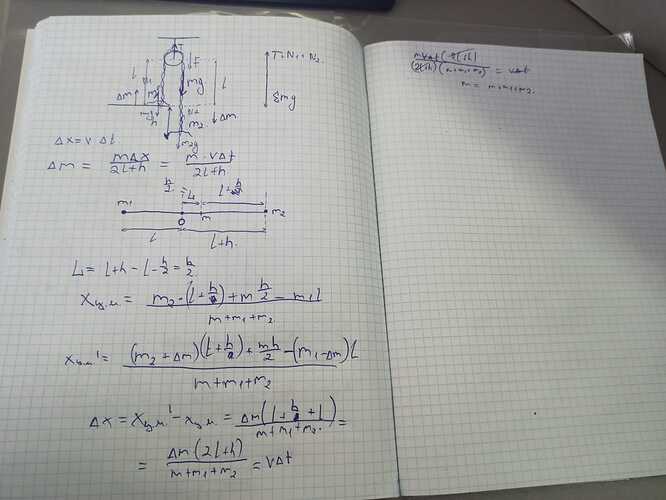 T
F
l
l
Δm
mg
T = N₁ + N₂
8mg
h
N₂
m₂
Δm
m₂g
Δx = v Δt
Δm = mΔx / 2l+h = m · vΔt / 2l+h
h/2 = L
l + h/2
m₁
O
m
m₂
l
l+h
L = l+h - l - h/2 = h/2
Xц.м = m₂ · (l + h) + m h/2 - m₁l / m+m₁+m₂
Xц.м' = (m₂ + Δm)(l + h) + mh/2 - (m₁ - Δm)l / m+m₁+m₂
Δx = Xц.м' - xц.м = Δm(l + h + l) / m+m₁+m₂ =
= Δm(2l+h) / m+m₁+m₂ = vΔt
mvΔt(2l+h) / (2l+h)(m+m₁+m₂) = vΔt
m = m+m₁+m₂.